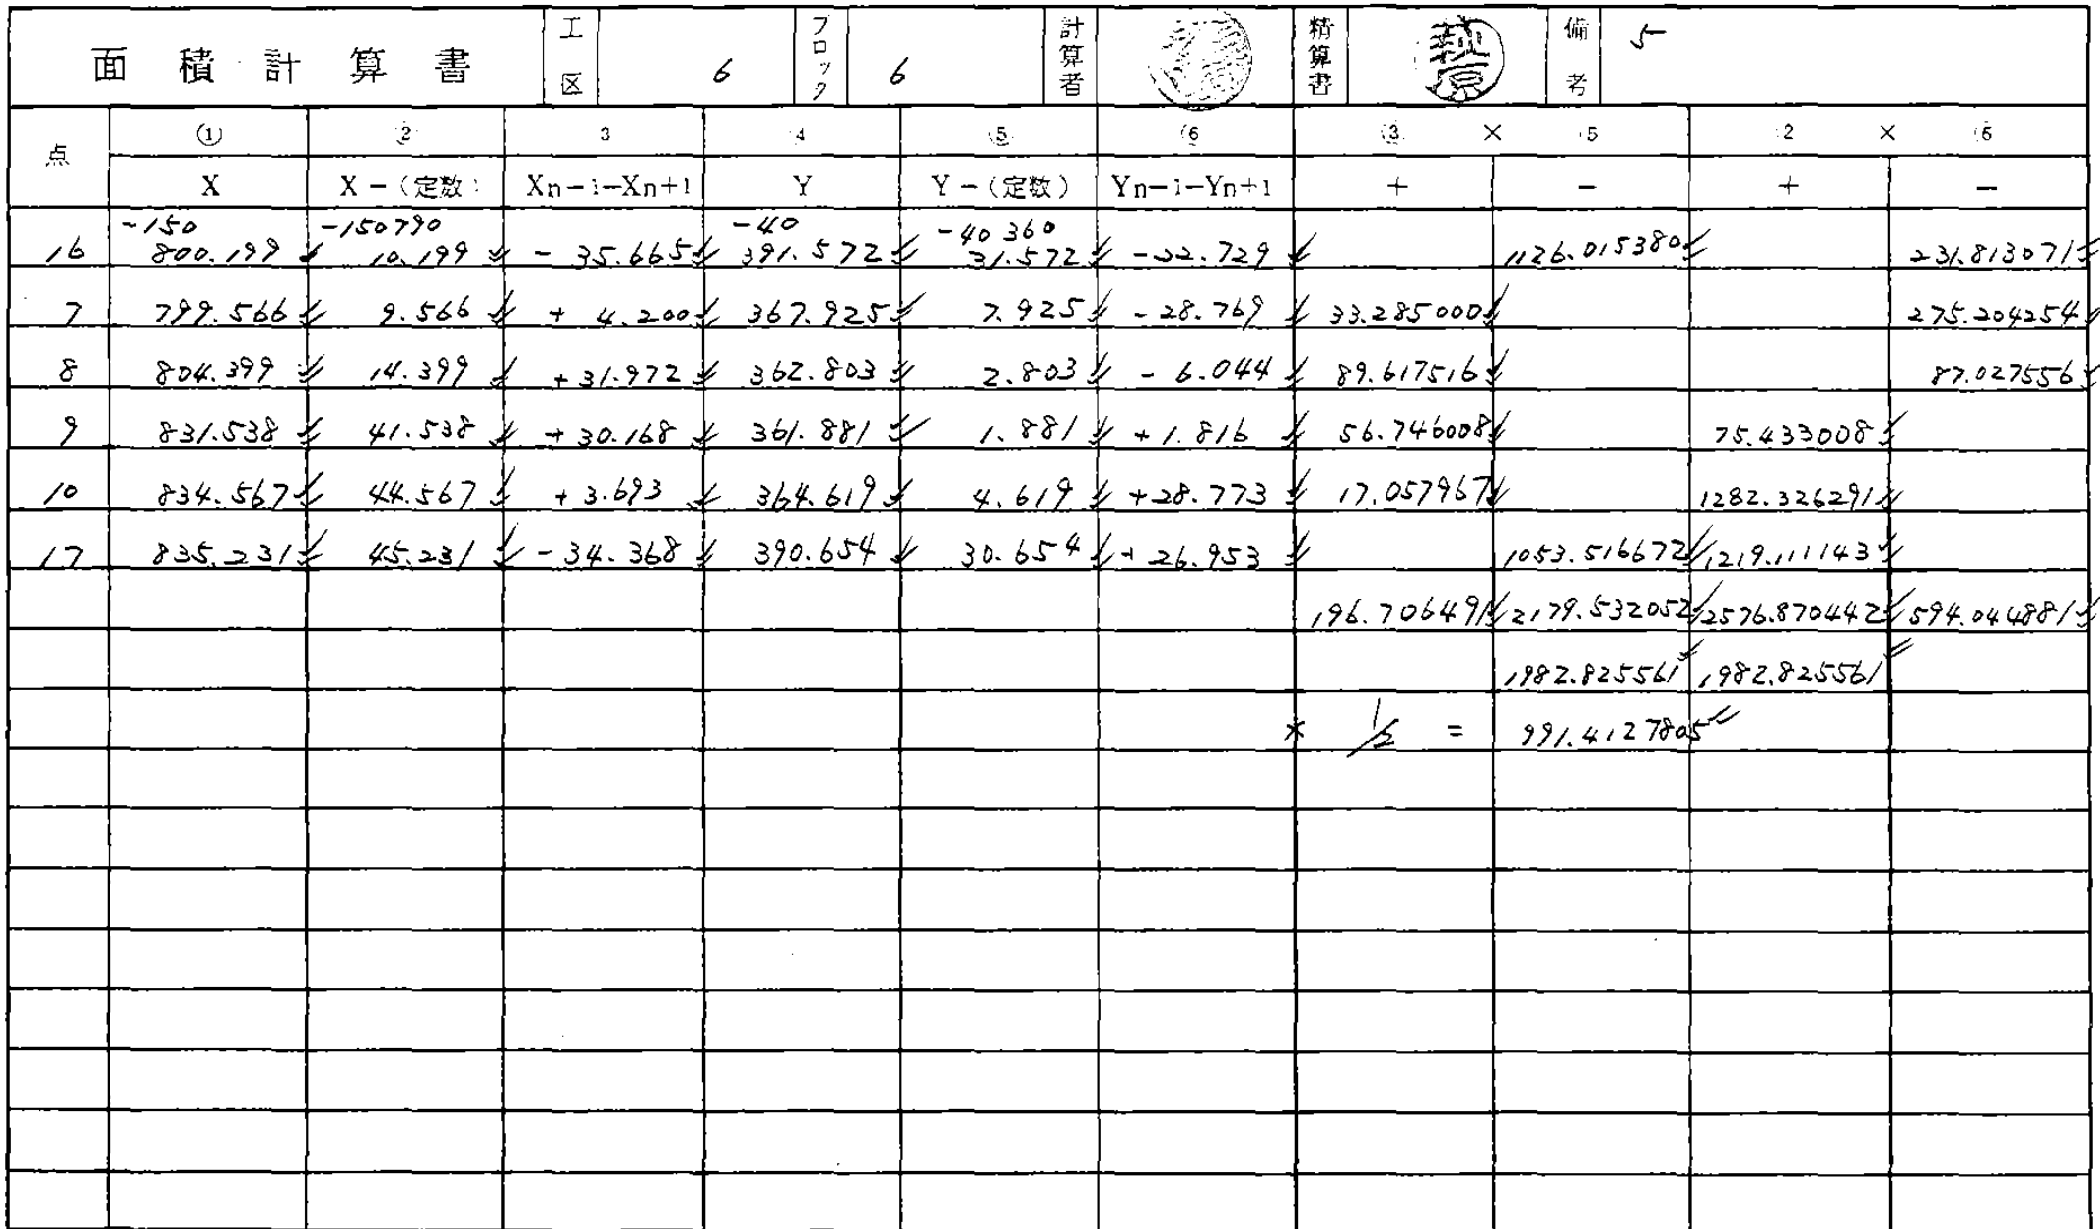 面積計算書 工区 6 ブロック 6 計算者 精算書 備考 5
点 ① ② 3 4 ⑤ ⑥ ③ × 5 2 × 6
X X−(定数) Xn−1−Xn+1 Y Y−(定数) Yn−1−Yn+1 + − + −
-150 -150790 -40 -40360
16 800.199 10.199 - 35.665 391.572 31.572 -22.729 1126.015380 231.813071
7 799.566 9.566 + 4.200 367.925 7.925 - 28.769 33.285000 275.204254
8 804.399 14.399 +31.972 362.803 2.803 - 6.044 89.617516 87.027556
9 831.538 41.538 +30.168 361.881 1.881 +1.816 56.746008 75.433008
10 834.567 44.567 +3.693 364.619 4.619 +28.773 17.057967 1282.326291
17 835.231 45.231 -34.368 390.654 30.654 +26.953 1053.516672 1219.111143
196.706491 2179.532052 2576.870442 594.044881
1982.825561 1982.825561
× 1/2 = 991.4127805